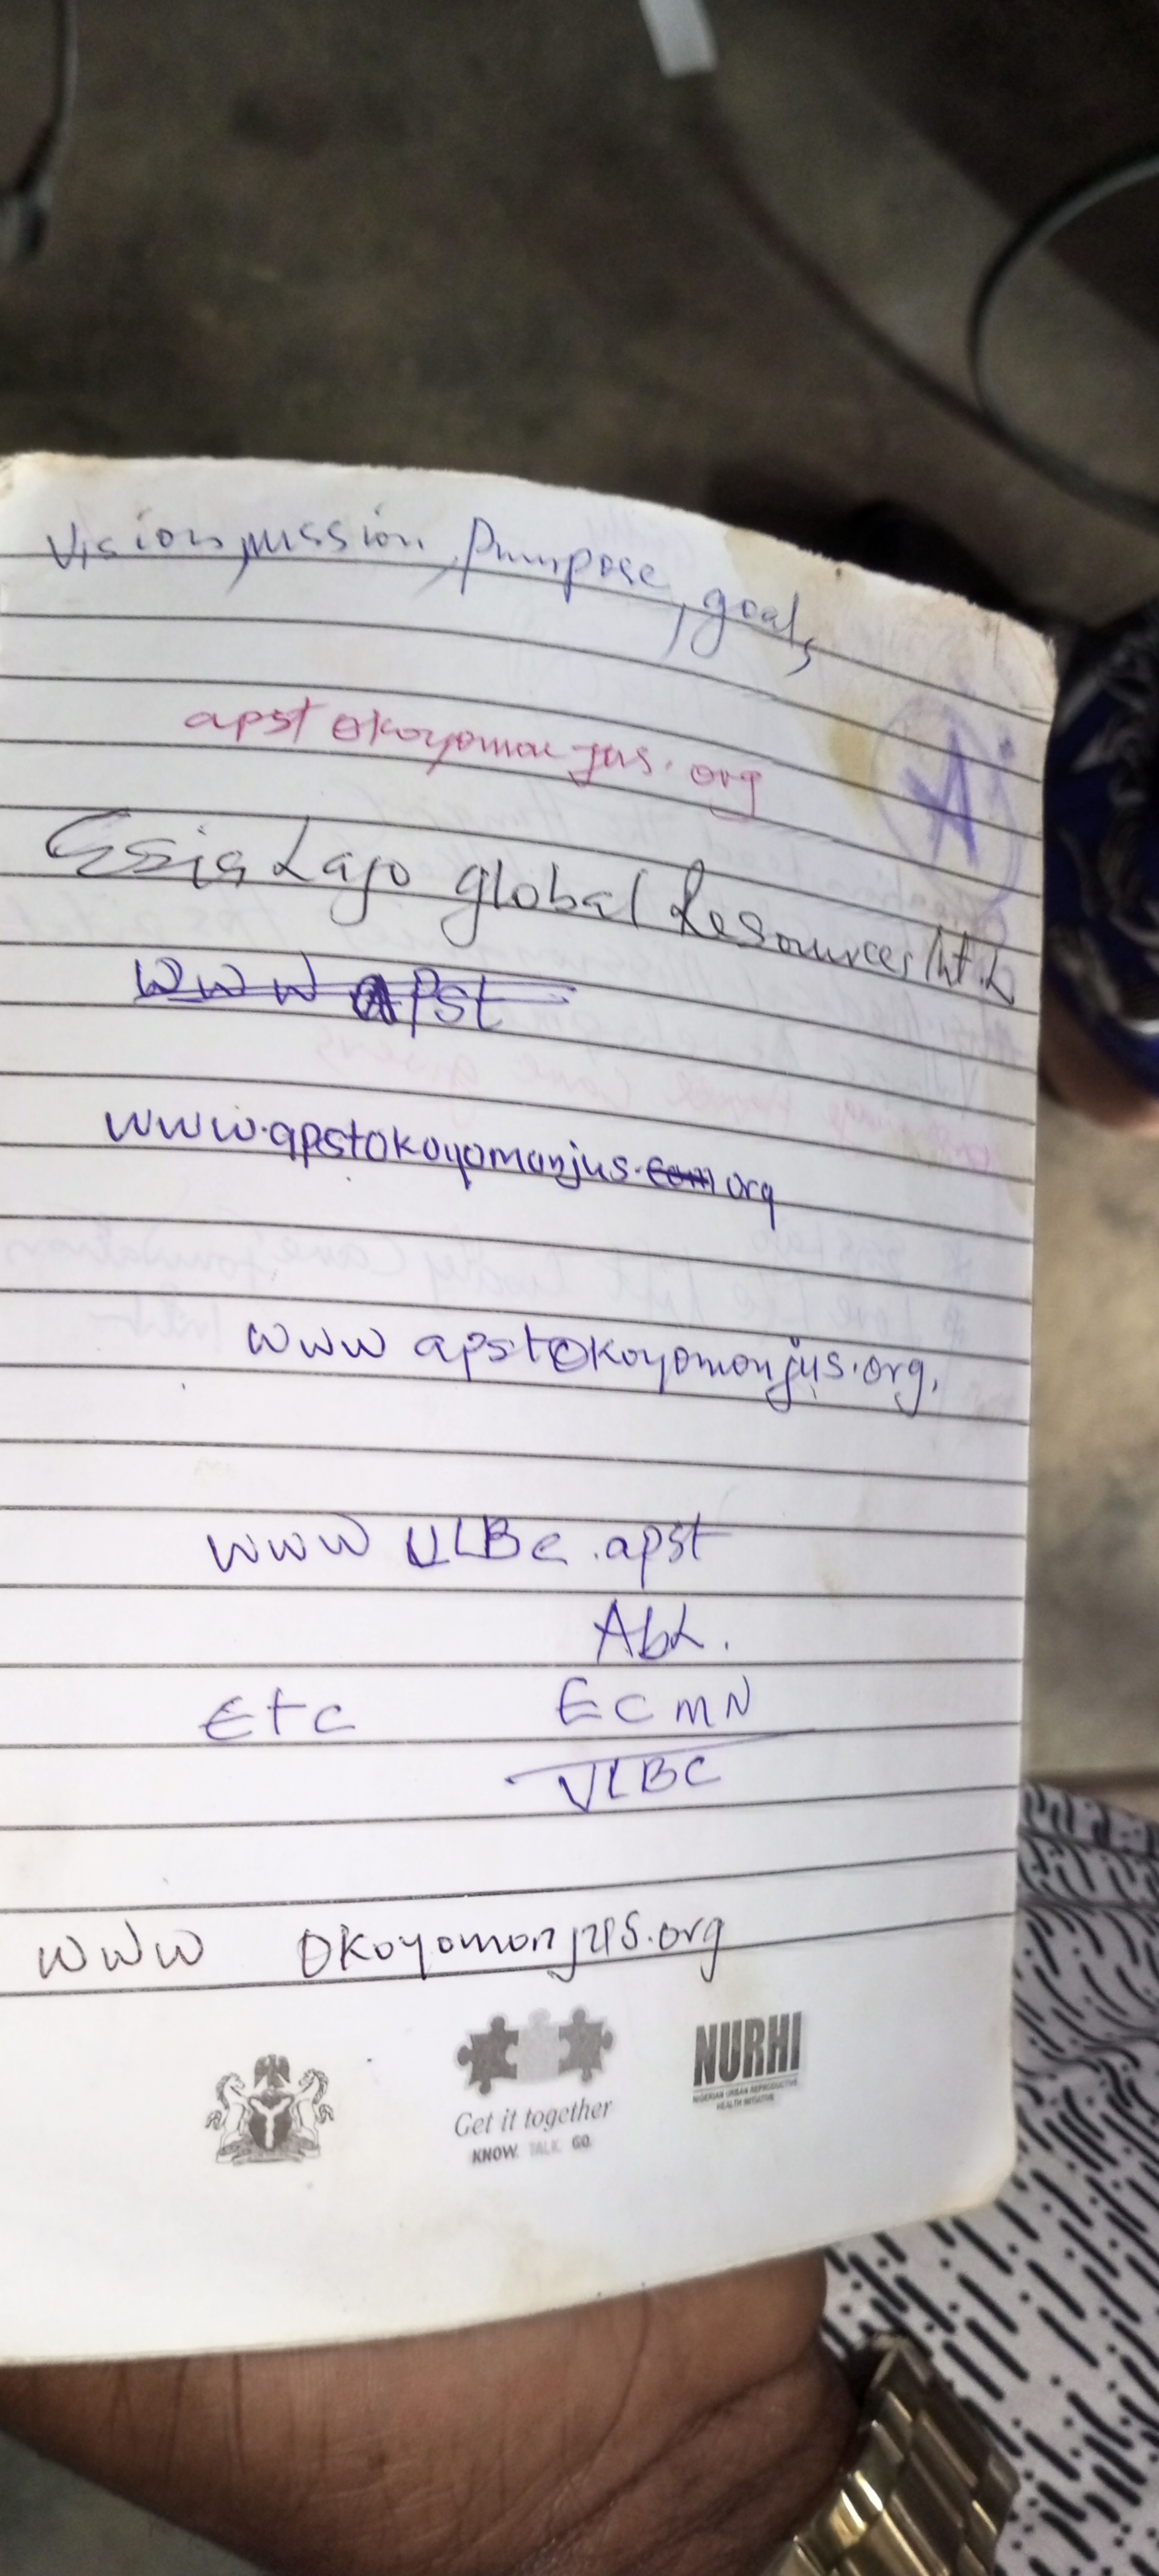 Vision, mission, Purpose, goals
apstokoyomonjus.org
Global Resources Int. L
www apst
www.apstokoyomonjus.com org
www apstokoyomonjus.org.
www VLBC .apst
AbL.
Etc ECMN
VLBC
www okoyomonjus.org
Get it together
KNOW. TALK. GO.
NURHI
NIGERIAN URBAN REPRODUCTIVE
HEALTH INITIATIVE